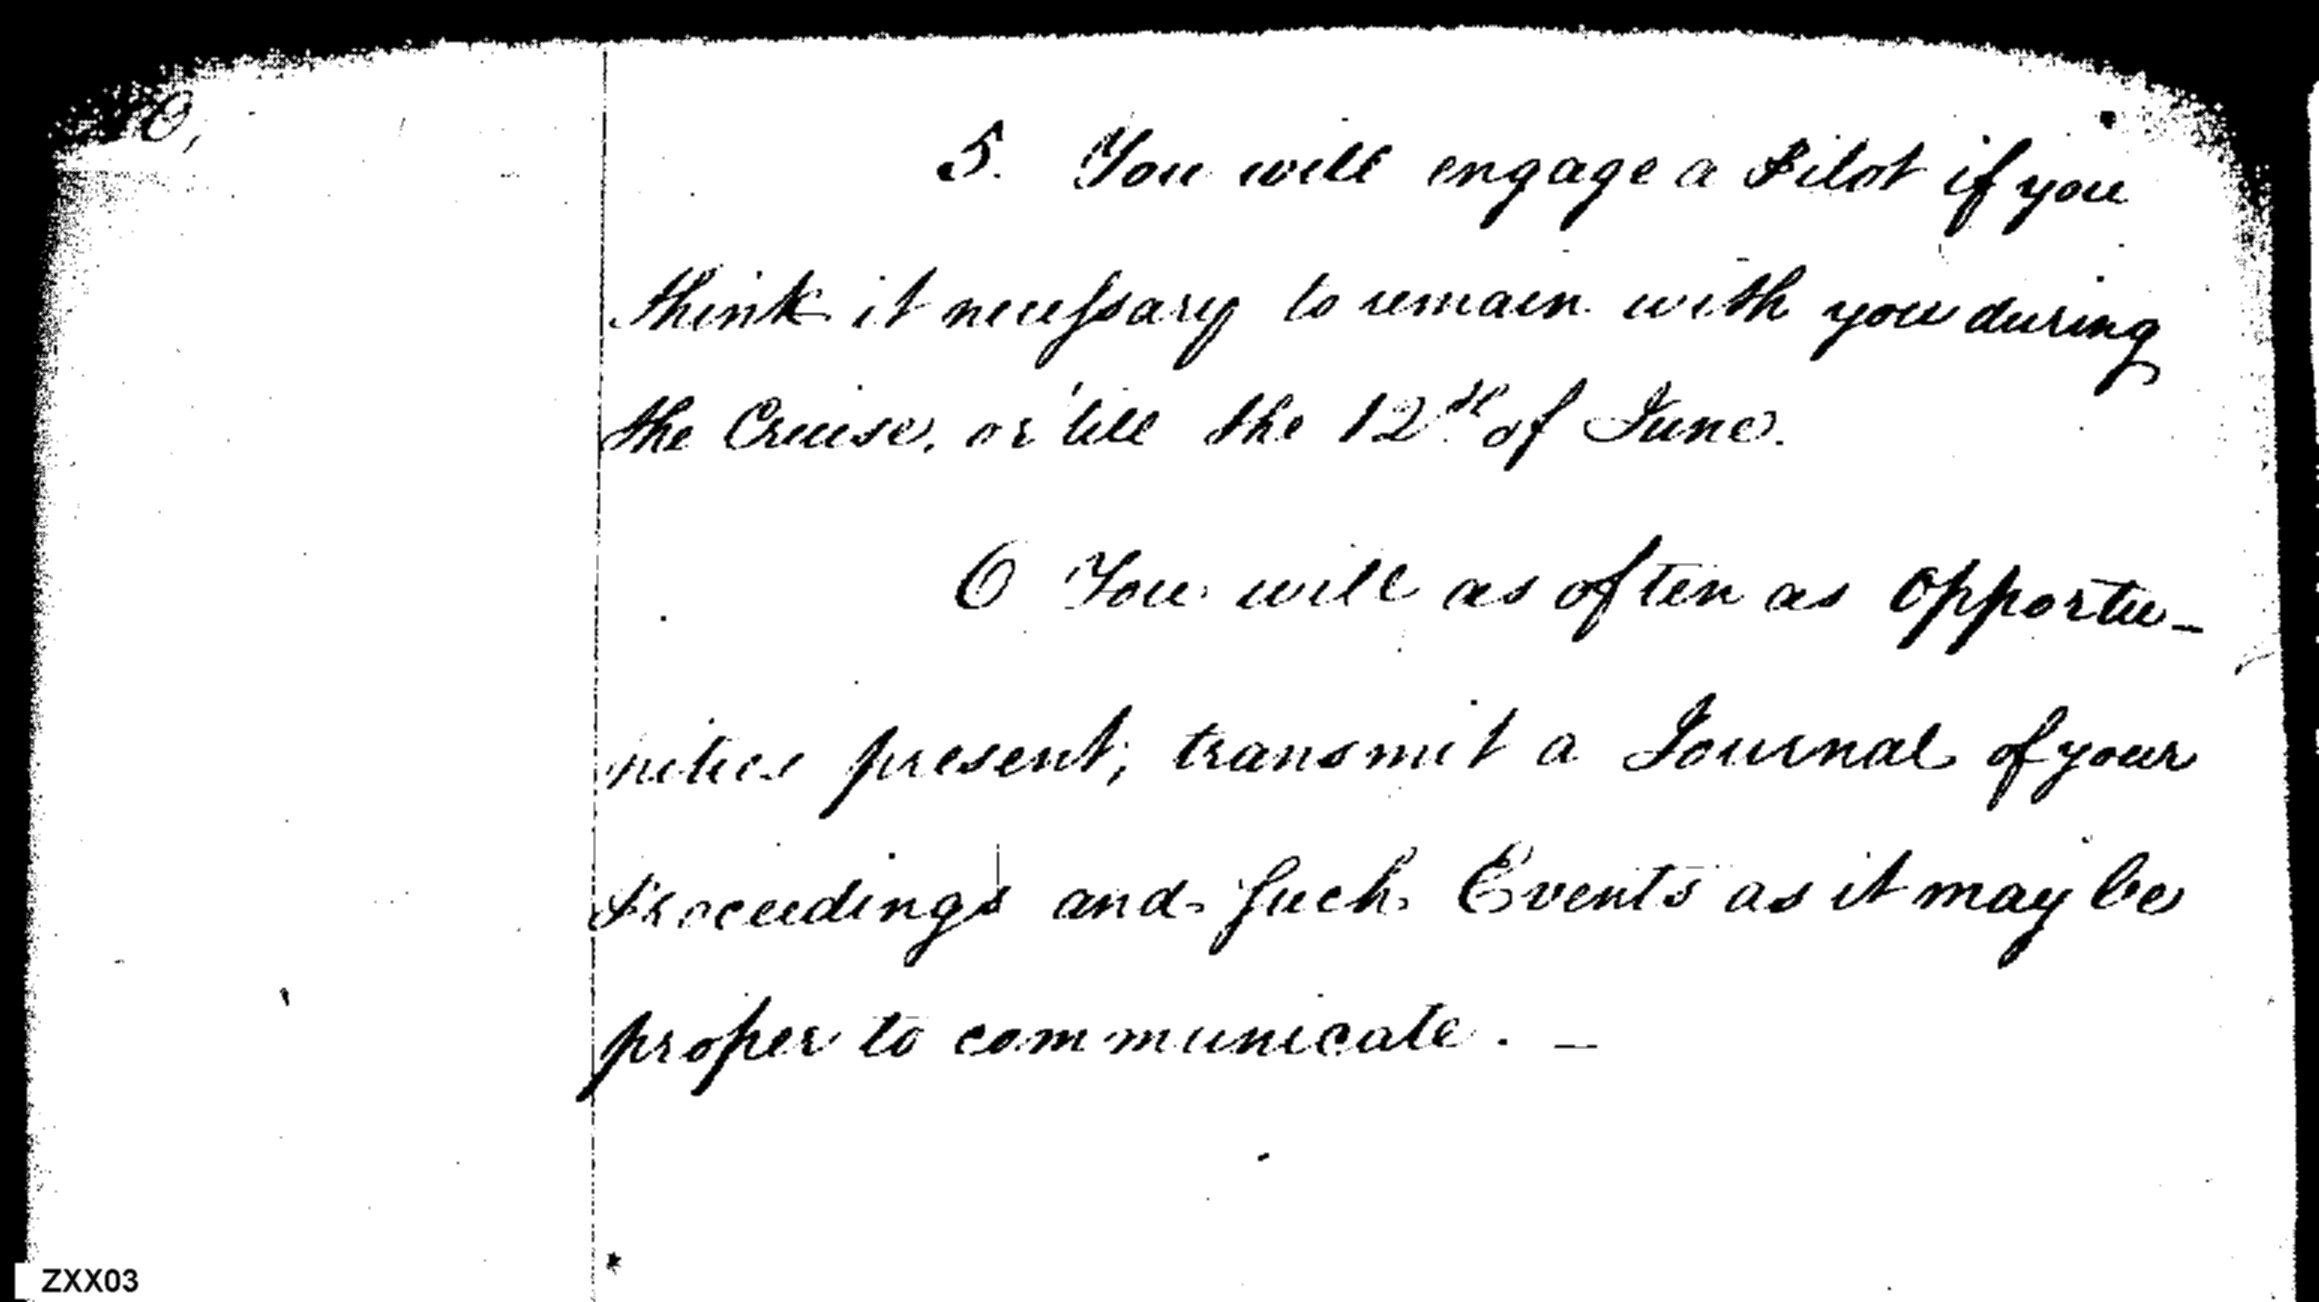 5. You will engage a Pilot if you
think it necessary to remain with you during
the Cruise, or 'till the 12th of June.
6 You will as often as opportu-
nities present, transmit a Journal of your
Proceedings and such Events as it may be
proper to communicate. -
ZXX03